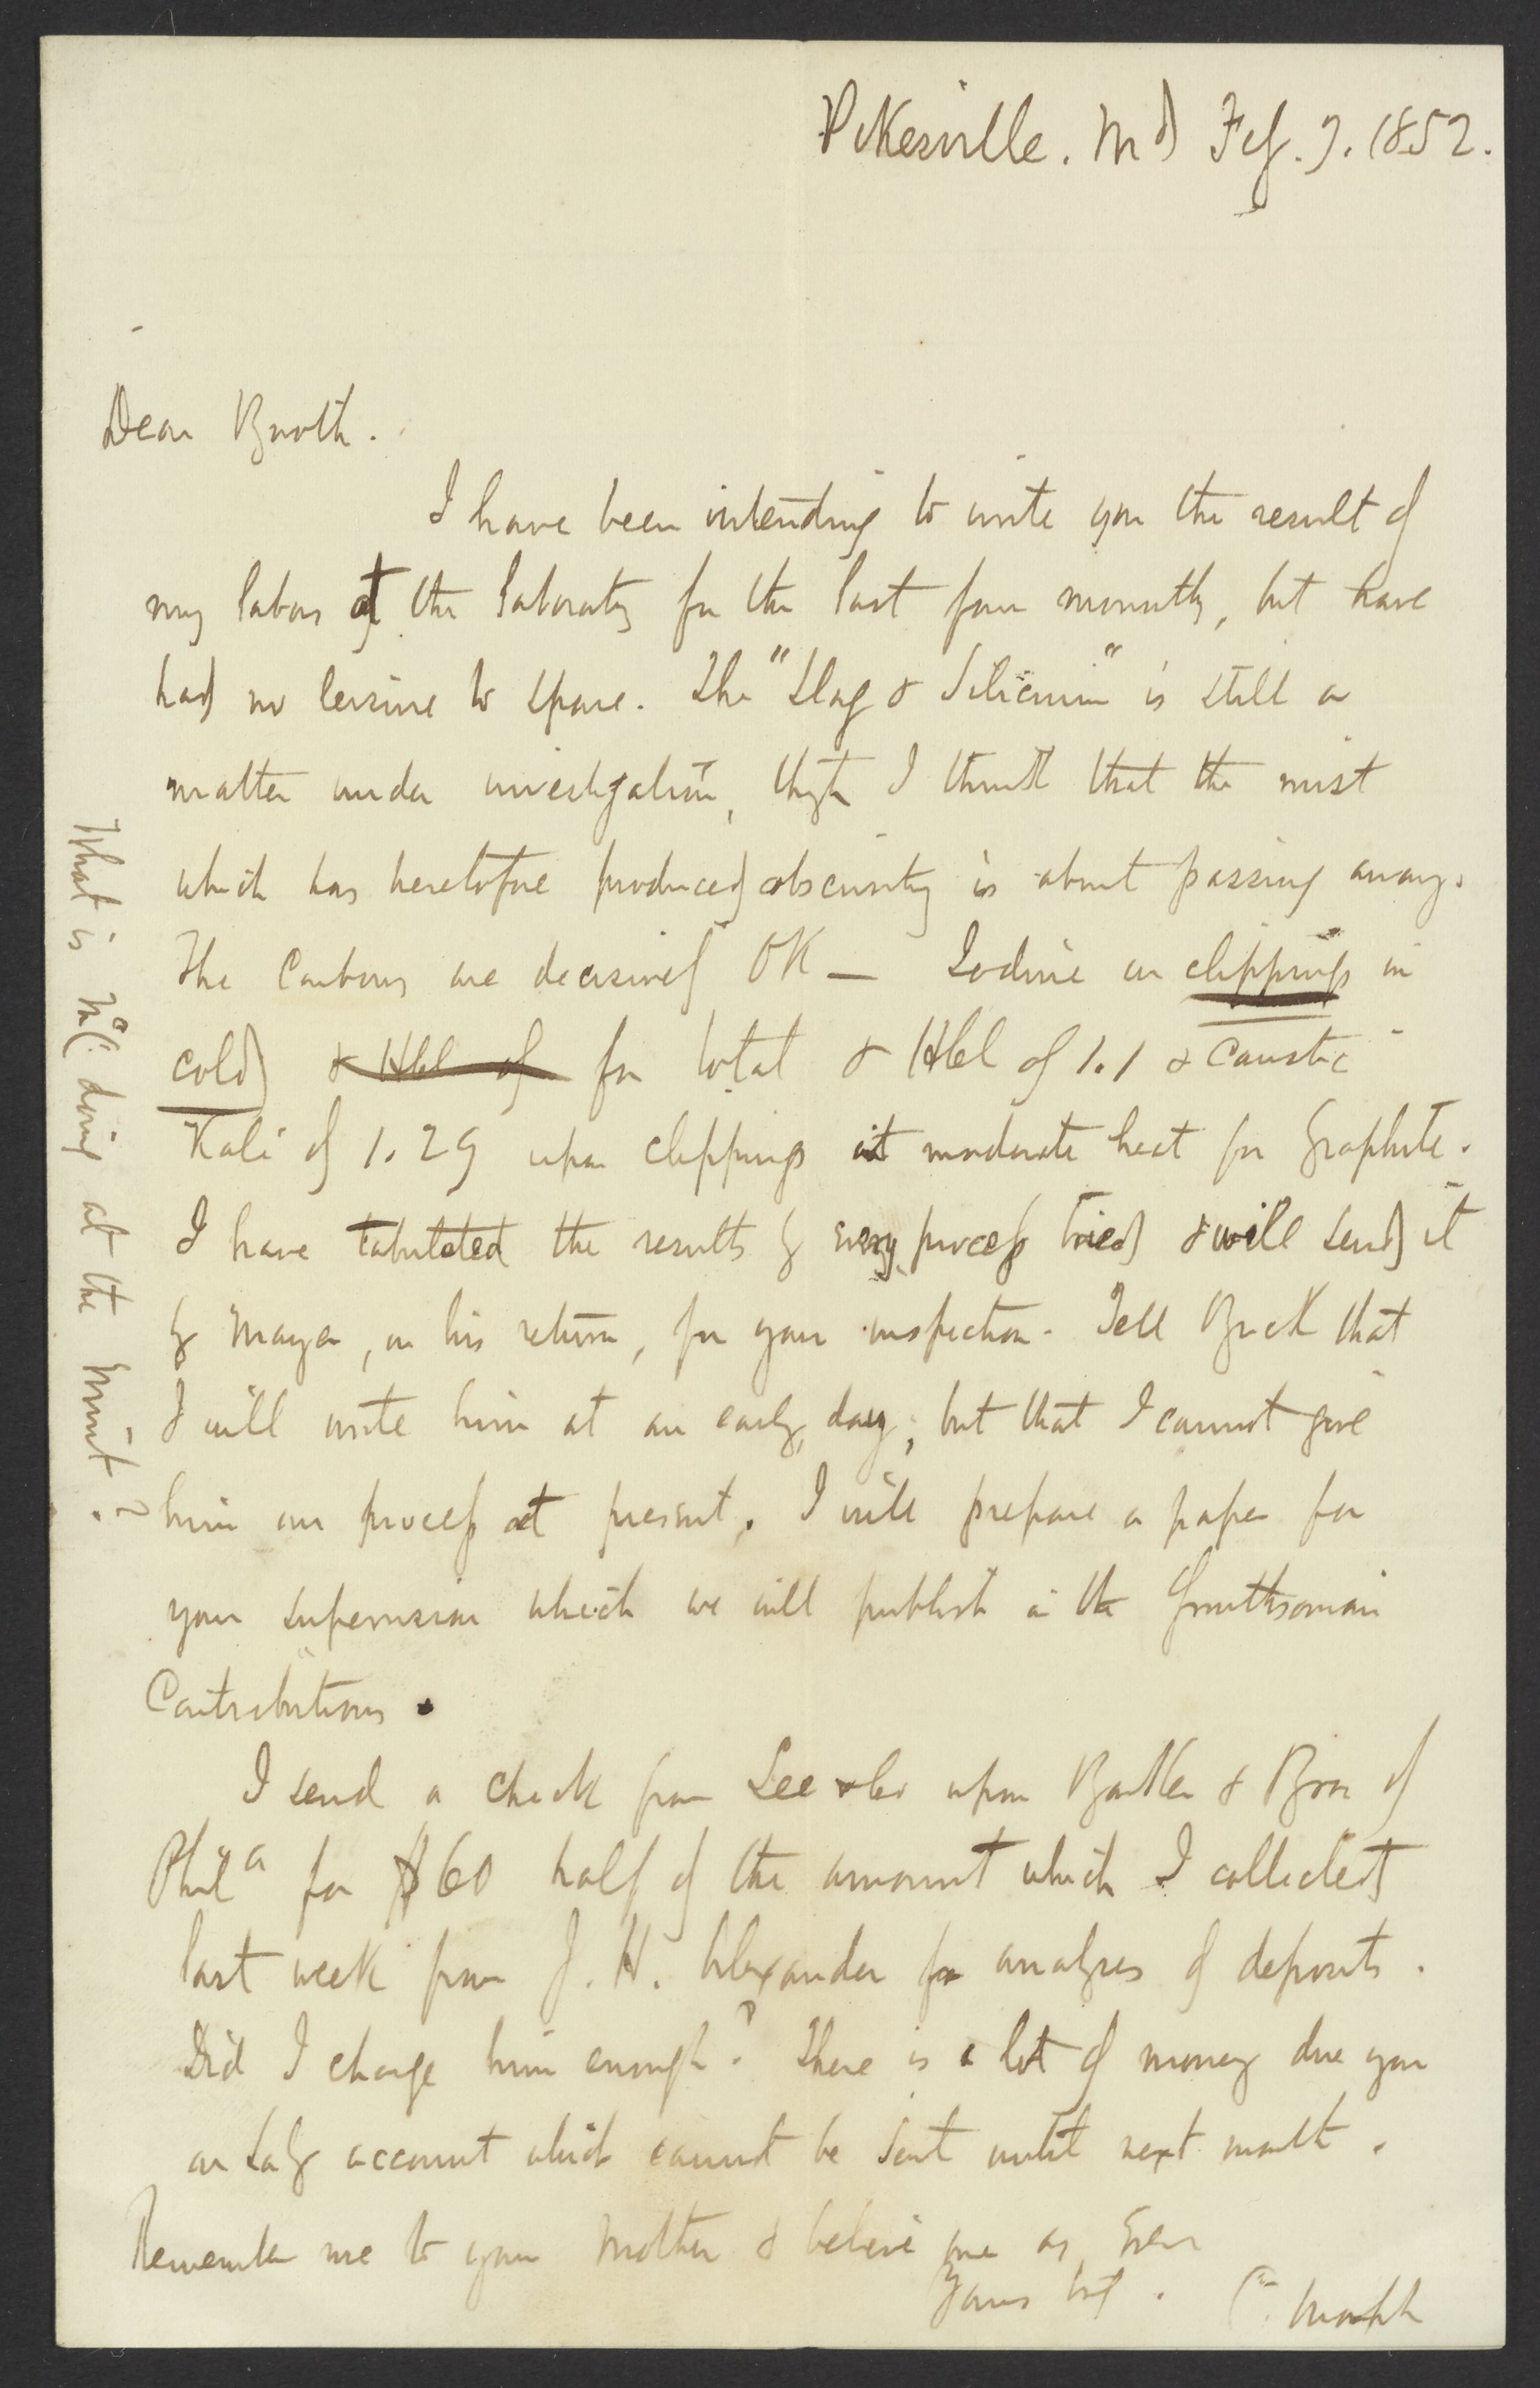 Pikesville. Md Feb. 9. 1852.
Dear Booth.
I have been intending to write you the result of
my labors at the laboratory for the last four months, but have
had no leisure to spare. The "Slag & Silicium" is still a
matter under investigation, though I think that the mist
which has heretofore produced obscurity is about passing away.
The Carbons are decisively OK — Iodine on clippings in
cold & HCl of for total & HCl of 1.1 & Caustic
Kali of 1.29 upon clippings at moderate heat for Graphite.
I have tabulated the results by every process tried & will send it
by Mayer, on his return, for your inspection. Tell Buck that
I will write him at an early day; but that I cannot give
him our process at present. I will prepare a paper for
your supervision which we will publish in the Smithsonian
Contributions.
I send a check from Lee & Co upon & Bro of
Phila for $60 half of the amount which I collected
last week from J. H. Alexander for analyses of deposits.
Did I charge him enough? There is a lot of money due you
on account which cannot be sent until next month.
Remember me to your Mother & believe me as Ever
Yours C. Morfit
What is McC. doing at the Mint?